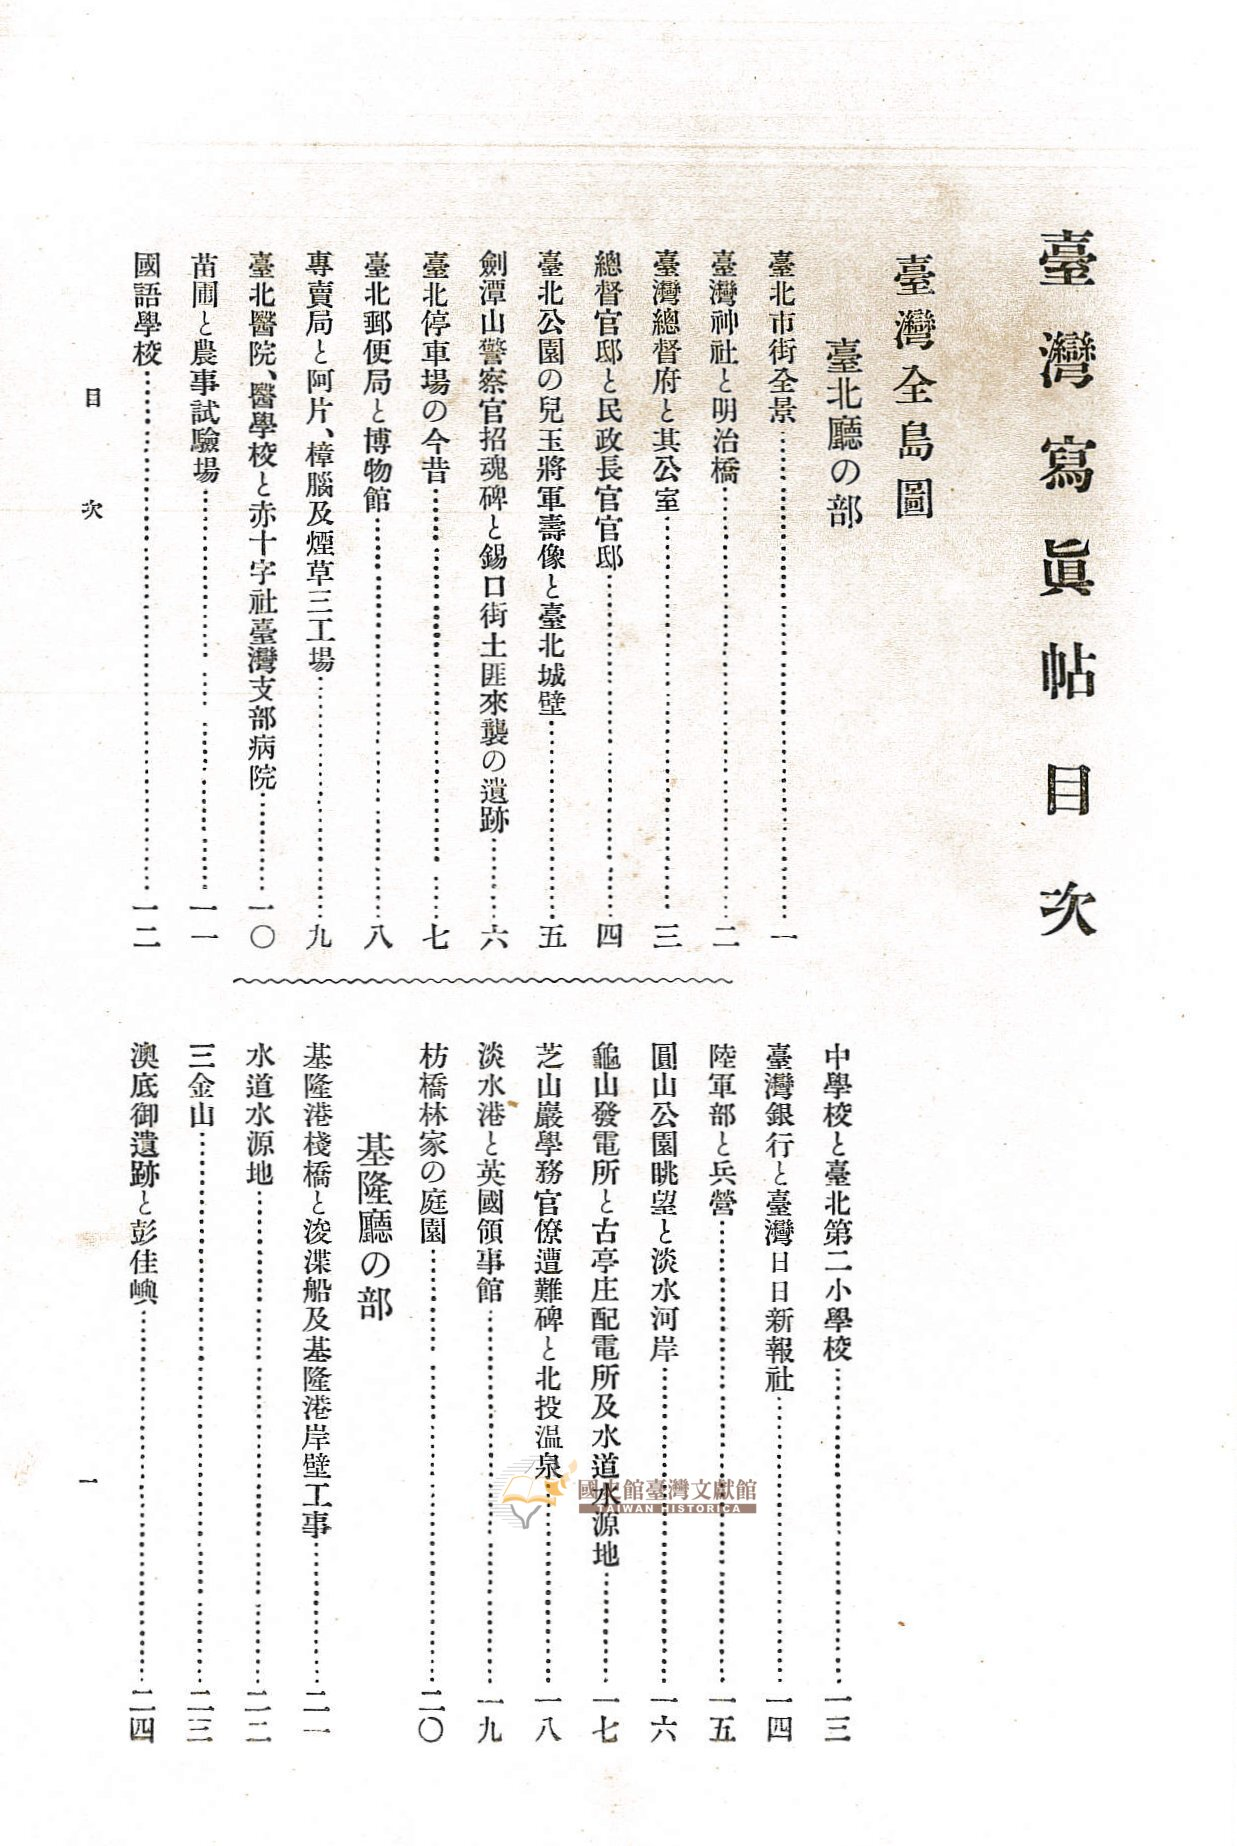 臺灣寫眞帖目次
臺灣全島圖
臺北廳の部
臺北市街全景………一
臺灣神社と明治橋………二
臺灣總督府と其公室………三
總督官邸と民政長官官邸………四
臺北公園の兒玉將軍壽像と臺北城壁………五
劍潭山警察官招魂碑と錫口街土匪來襲の遺跡………六
臺北停車場の今昔………七
臺北郵便局と博物館………八
專賣局と阿片、樟腦及煙草三工場………九
臺北醫院、醫學校と赤十字社臺灣支部病院………一〇
苗圃と農事試驗場………一一
國語學校………一二
中學校と臺北第二小學校………一三
臺灣銀行と臺灣日日新報社………一四
陸軍部と兵營………一五
圓山公園眺望と淡水河岸………一六
龜山發電所と古亭庄配電所及水道水源地………一七
芝山巖學務官僚遭難碑と北投温泉………一八
淡水港と英國領事館………一九
枋橋林家の庭園………二〇
基隆廳の部
基隆港棧橋と浚渫船及基隆港岸壁工事………二一
水道水源地………二二
三金山………二三
澳底御遺跡と彭佳嶼………二四
目次
一
國史館臺灣文獻館
TAIWAN HISTORICA